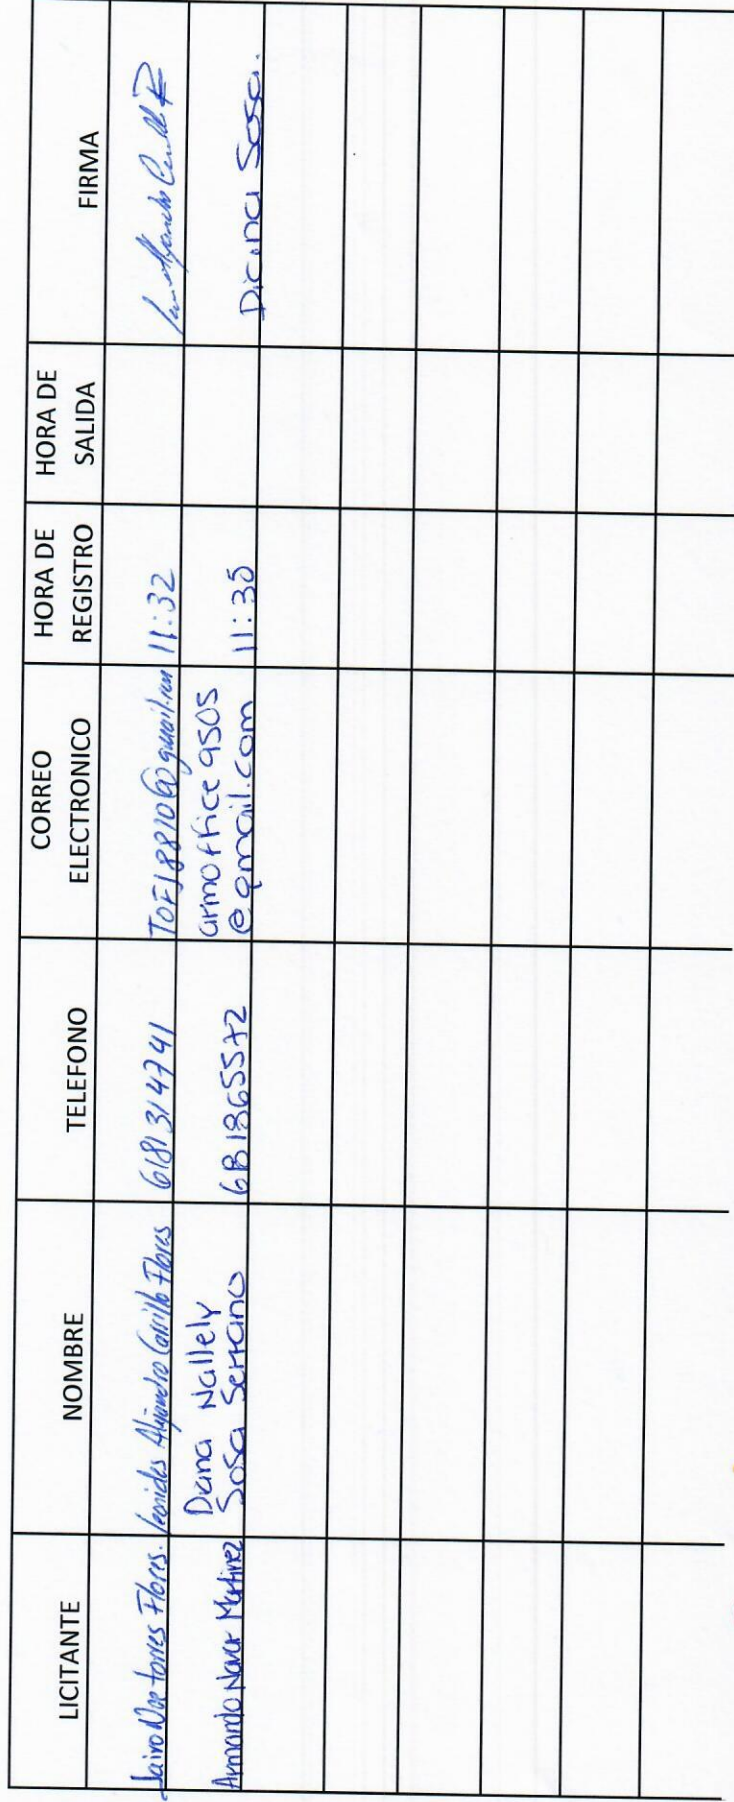 LICITANTE NOMBRE TELEFONO CORREO ELECTRONICO HORA DE REGISTRO HORA DE SALIDA FIRMA
Jairo Noe torres Flores. Leonides Alejandro Carrillo Flores 6181314741 TOFJ8810@gmail.com 11:32
Armando Navar Martinez Diana Nallely Sosa Serrano 6181865572 armoffice9505@gmail.com 11:35 Diana Sosa.